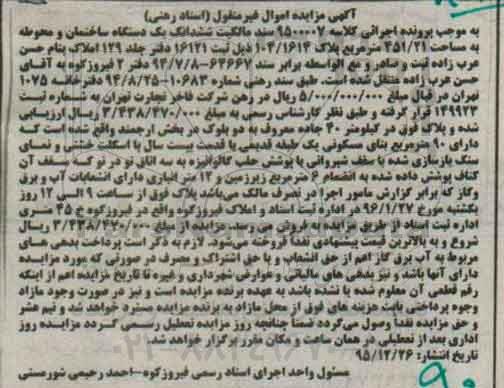 آگهی مزایده اموال غیرمنقول (اسناد رهنی)
به موجب پرونده اجرائی کلاسه ۹۵۰۰۰۰۷ سند مالکیت ششدانگ یک دستگاه ساختمان و محوطه
به مساحت ۴۵۱/۲۱ مترمربع پلاک ۱۰۴/۱۶۱۴ ذیل ثبت ۱۶۱۲۱ دفتر جلد ۱۲۹ املاک بنام حسن
عرب زاده ثبت و صادر و مع الواسطه برابر سند ۶۴۶۶۷-۹۴/۷/۸ دفتر ۲ فیروزکوه به آقای
حسن عرب زاده منتقل شده است. طبق سند رهنی شماره ۱۰۶۸۳-۹۴/۸/۲۵ دفترخانه ۱۰۷۵
تهران در قبال مبلغ ۵/۰۰۰/۰۰۰/۰۰۰ ریال در رهن شرکت فاخر تجارت تهران به شماره ثبت
۱۴۹۹۲۳ قرار گرفته و طبق نظر کارشناس رسمی به مبلغ ۳/۴۳۸/۴۷۰/۰۰۰ ریال ارزیابی
شده و پلاک فوق در کیلومتر ۴۰ جاده معروف به دو بلوک در بخش ارجمند واقع شده است که
دارای ۹۰ مترمربع بنای مسکونی یک طبقه قدیمی با قدمت بیست سال با اسکلت خشتی و نمای
سنگ بازسازی شده با سقف شیروانی با پوشش حلب گالوانیزه به سه اتاق تو در تو که سقف آن
کناف پوشش داده شده به انضمام ۶ مترمربع زیرزمین و ۱۲ متر انباری دارای انشعابات آب و برق
وگاز که برابر گزارش مامور اجرا در تصرف مالک می‌باشد پلاک فوق از ساعت ۹ الی ۱۲ روز
یکشنبه مورخ ۹۶/۱/۲۷ در اداره ثبت اسناد و املاک فیروزکوه واقع در فیروزکوه خ ۴۵ متری
اداره ثبت اسناد از طریق مزایده به فروش می رسد. مزایده از مبلغ ۳/۴۳۸/۴۷۰/۰۰۰ ریال
شروع و به بالاترین قیمت پیشنهادی نقدا فروخته می‌شود. لازم به ذکر است پرداخت بدهی های
مربوط به آب برق گاز اعم از حق انشعاب و یا حق اشتراک و مصرف در صورتی که مورد مزایده
دارای آنها باشد و نیز بدهی های مالیاتی و عوارض شهرداری و غیره تا تاریخ مزایده اعم از اینکه
رقم قطعی آن معلوم شده یا نشده باشد به عهده برنده مزایده است و نیز در صورت وجود مازاد
وجوه پرداختی بابت هزینه های فوق از محل مازاد به برنده مزایده مسترد خواهد شد و نیم عشر
و حق مزایده نقدا وصول می‌گردد ضمنا چنانچه روز مزایده تعطیل رسمی گردد مزایده روز
اداری بعد از تعطیلی در همان ساعت و مکان مقرر برگزار خواهد شد.
تاریخ انتشار: ۹۵/۱۲/۲۶
مسئول واحد اجرای اسناد رسمی فیروزکوه-احمد رحیمی شورمستی